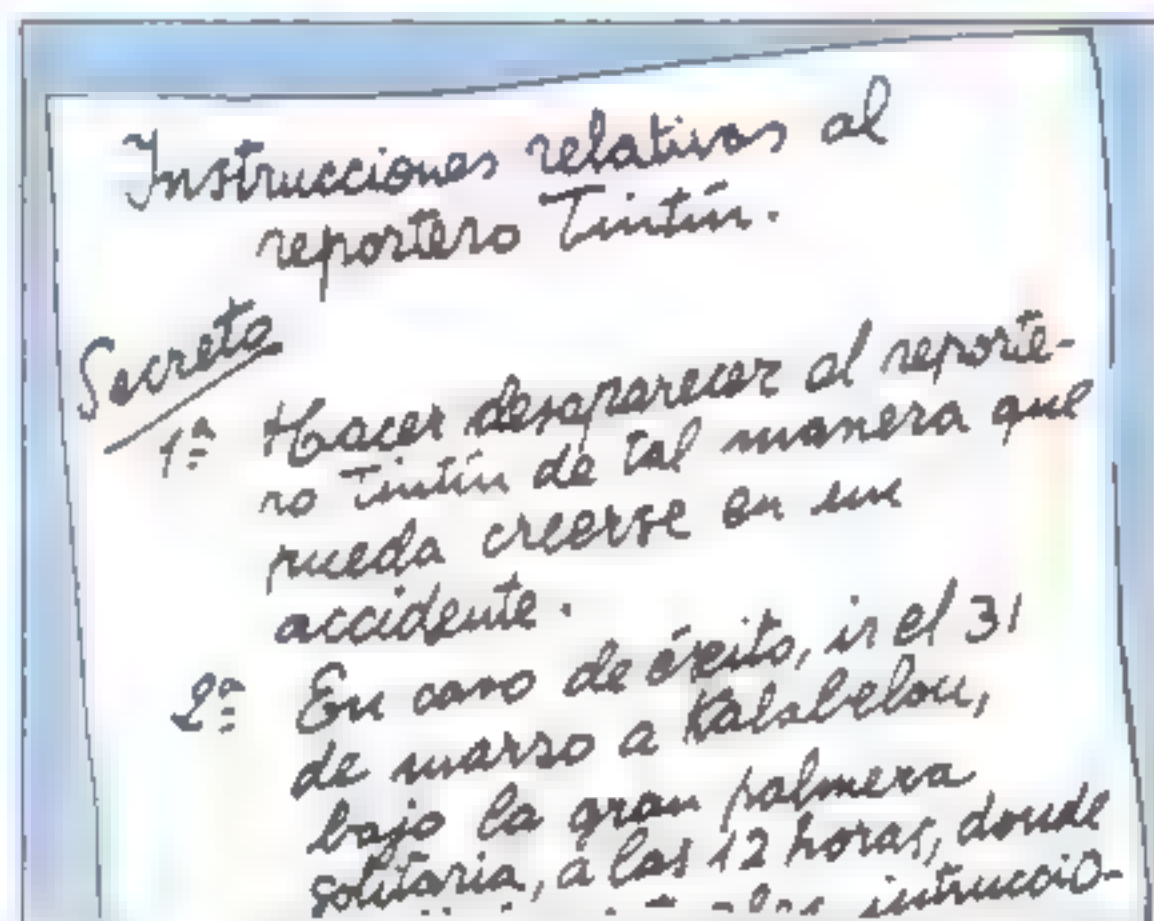 Instrucciones relativas al
reportero Tintín.
Secreto
1ª Hacer desaparecer al reporte-
ro Tintín de tal manera que
pueda creerse en un
accidente.
2ª En caso de éxito, ir el 31
de marso a Kalabelou,
bajo la gran palmera
solitaria, a las 12 horas, donde
intruccio-